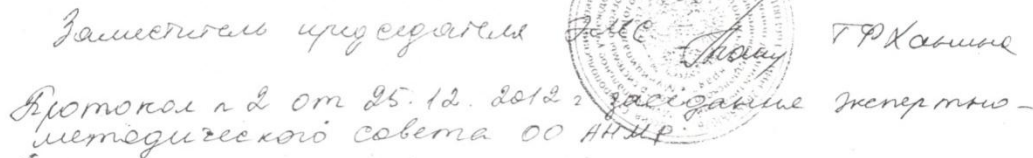 Заместитель председателя ЭМС ГФХанина
Протокол n 2 от 25.12.2012 г заседание экспертно-
методического совета ОО АНМР.